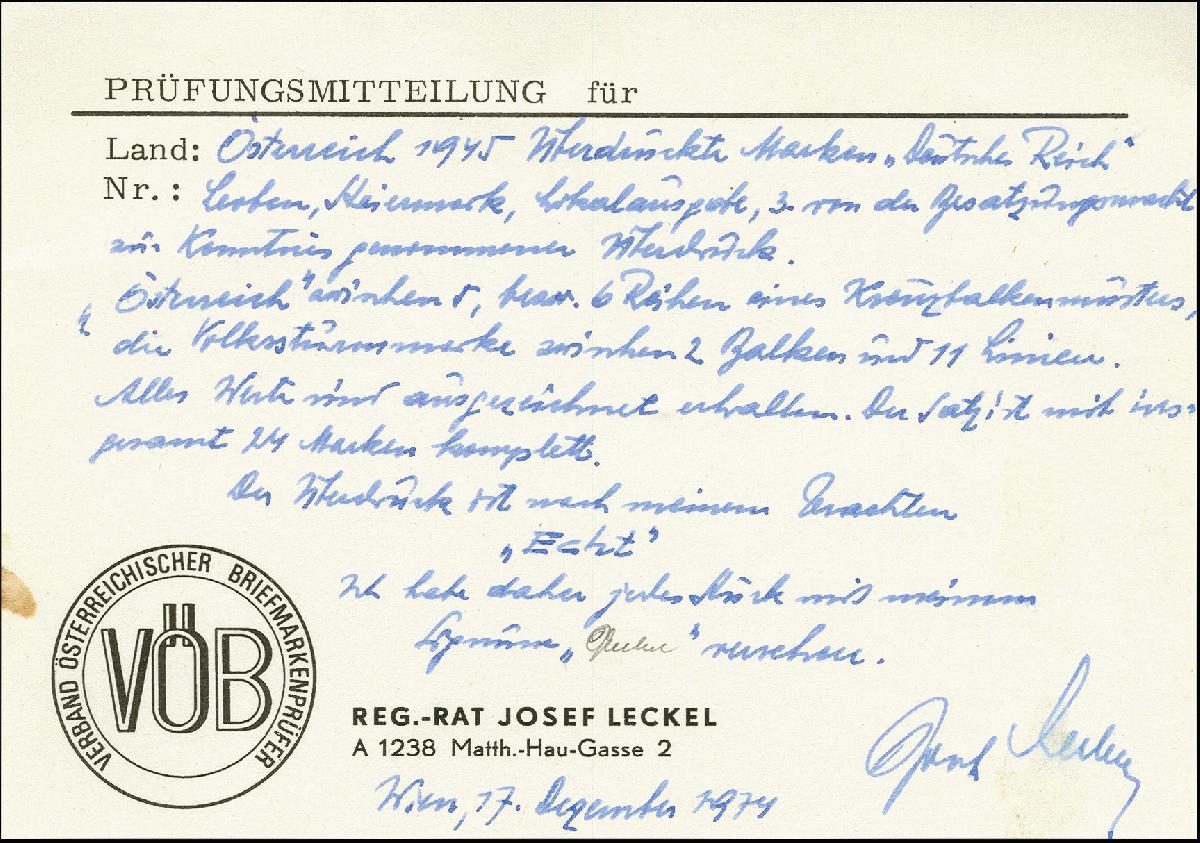 PRÜFUNGSMITTEILUNG für
Land: Österreich 1945 Überdruckte Marken „Deutsches Reich"
Nr.: Leoben, Steiermark, Lokalausgabe, 3. von der Besatzungsmacht
zur Kenntnis genommener Überdruck.
„Österreich" zwischen 5, bezw. 6 Reihen eines Kreuzbalkenmusters,
die Volkssturmmarke zwischen 2 Balken und 11 Linien.
Alles Werte sind ausgezeichnet erhalten. Der Satz ist mit ins-
gesamt 24 Marken komplett.
Der Überdruck ist nach meinem Erachten
„Echt"
Ich habe daher jedes Stück mit meinem
Signum „ " versehen.
VERBAND ÖSTERREICHISCHER BRIEFMARKENPRÜFER
VÖB
REG.-RAT JOSEF LECKEL
A 1238 Matth.-Hau-Gasse 2
Wien, 17. Dezember 1974